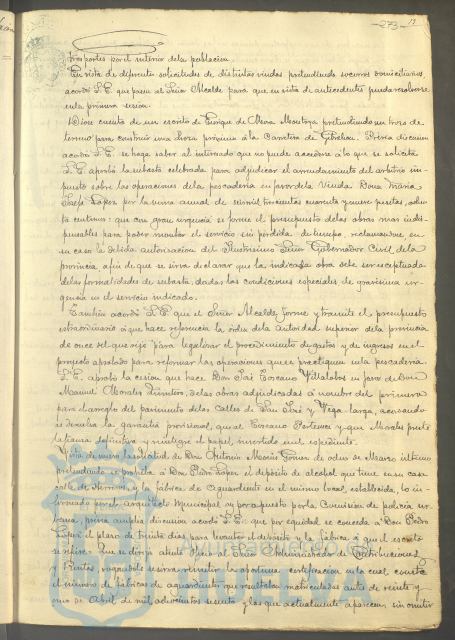 273
trasportes por el interior de la poblacion.
En vista de diferentes solicitudes de distintas viudas pretendiendo socorros domiciliarios,
acordó S.E. que pasen al Señor Alcalde para que en vista de antecedentes pueda resolverse
en la primera sesion.
Diose cuenta de un escrito de Enrique de Mora Montoya pretendiendo un trozo de
terreno para construir una choza próxima á la Carretera de Gibraltar. Prévia discusion
acordó S.E. se haga saber al interesado que no puede accederse á lo que se solicita
S.E. aprobó la subasta celebrada para adjudicar el arrendamiento del arbitrio im-
puesto sobre las operaciones de la pescadería en favor de la Viuda Doña María
Josefa Lopez por la suma anual de seis mil trescientas cuarenta y nueve pesetas, ochen
ta centimos: que con gran urgencia se forme el presupuesto de las obras mas indis-
pensables para poder montar el servicio sin pérdida de tiempo, reclamandose en
su caso la debida autorizacion del Ilustrisimo Señor Gobernador Civil de la
provincia afin de que se sirva declarar que la indicada obra debe ser esceptuada
de las formalidades de subasta, dadas las condiciones especiales de gravisima ur-
gencia en el servicio indicado.
Tambien acordó S.E. que el Señor Alcalde forme y tramite el presupuesto
estraordinario á que hace referencia la orden de la Autoridad superior de la provincia
de once del que rije para legalizar el procedimiento de gastos y de ingresos en el
proyecto aprobado para reformar las operaciones que se practiquen en la pescadería.
S.E. aprobó la cesion que hace Don José Toscano Villalobos en favor de Don
Manuel Morales de las obras adjudicadas á nombre del primero
para el arreglo del pavimento de las calles de San José y Vega larga, acordando
se devuelva la garantía provisional, que al Toscano Pertenece y que Morales preste
la fianza definitiva y reintegre el papel invertido en el espediente.
Vista de nuevo la solicitud de Don Antonio Morón Gómez de ocho de Marzo último
pretendiendo se prohiba á Don Pedro Lopez el depósito de alcohol que tiene en su casa
calle de Herreria y la fábrica de aguardiente en el mismo local, establecida, lo in-
formado por el arquitecto Municipal y lo propuesto por la Comision de policía ur-
bana, prévia amplia discusion acordó S.E. que por equidad se conceda á Don Pedro
Lopez el plazo de treinta dias para levantar el depósito y la fábrica á que el escrito
se refiere. Que se dirija atento oficio al Señor Administrador de Contribuciones
y Rentas, rogandole se sirva remitir la oportuna certificacion en la cual conste
el número de fábricas de aguardiente que resultaban matriculadas antes de veinte y
uno de Abril de mil ochocientos sesenta y las que actualmente aparecen sin omitir